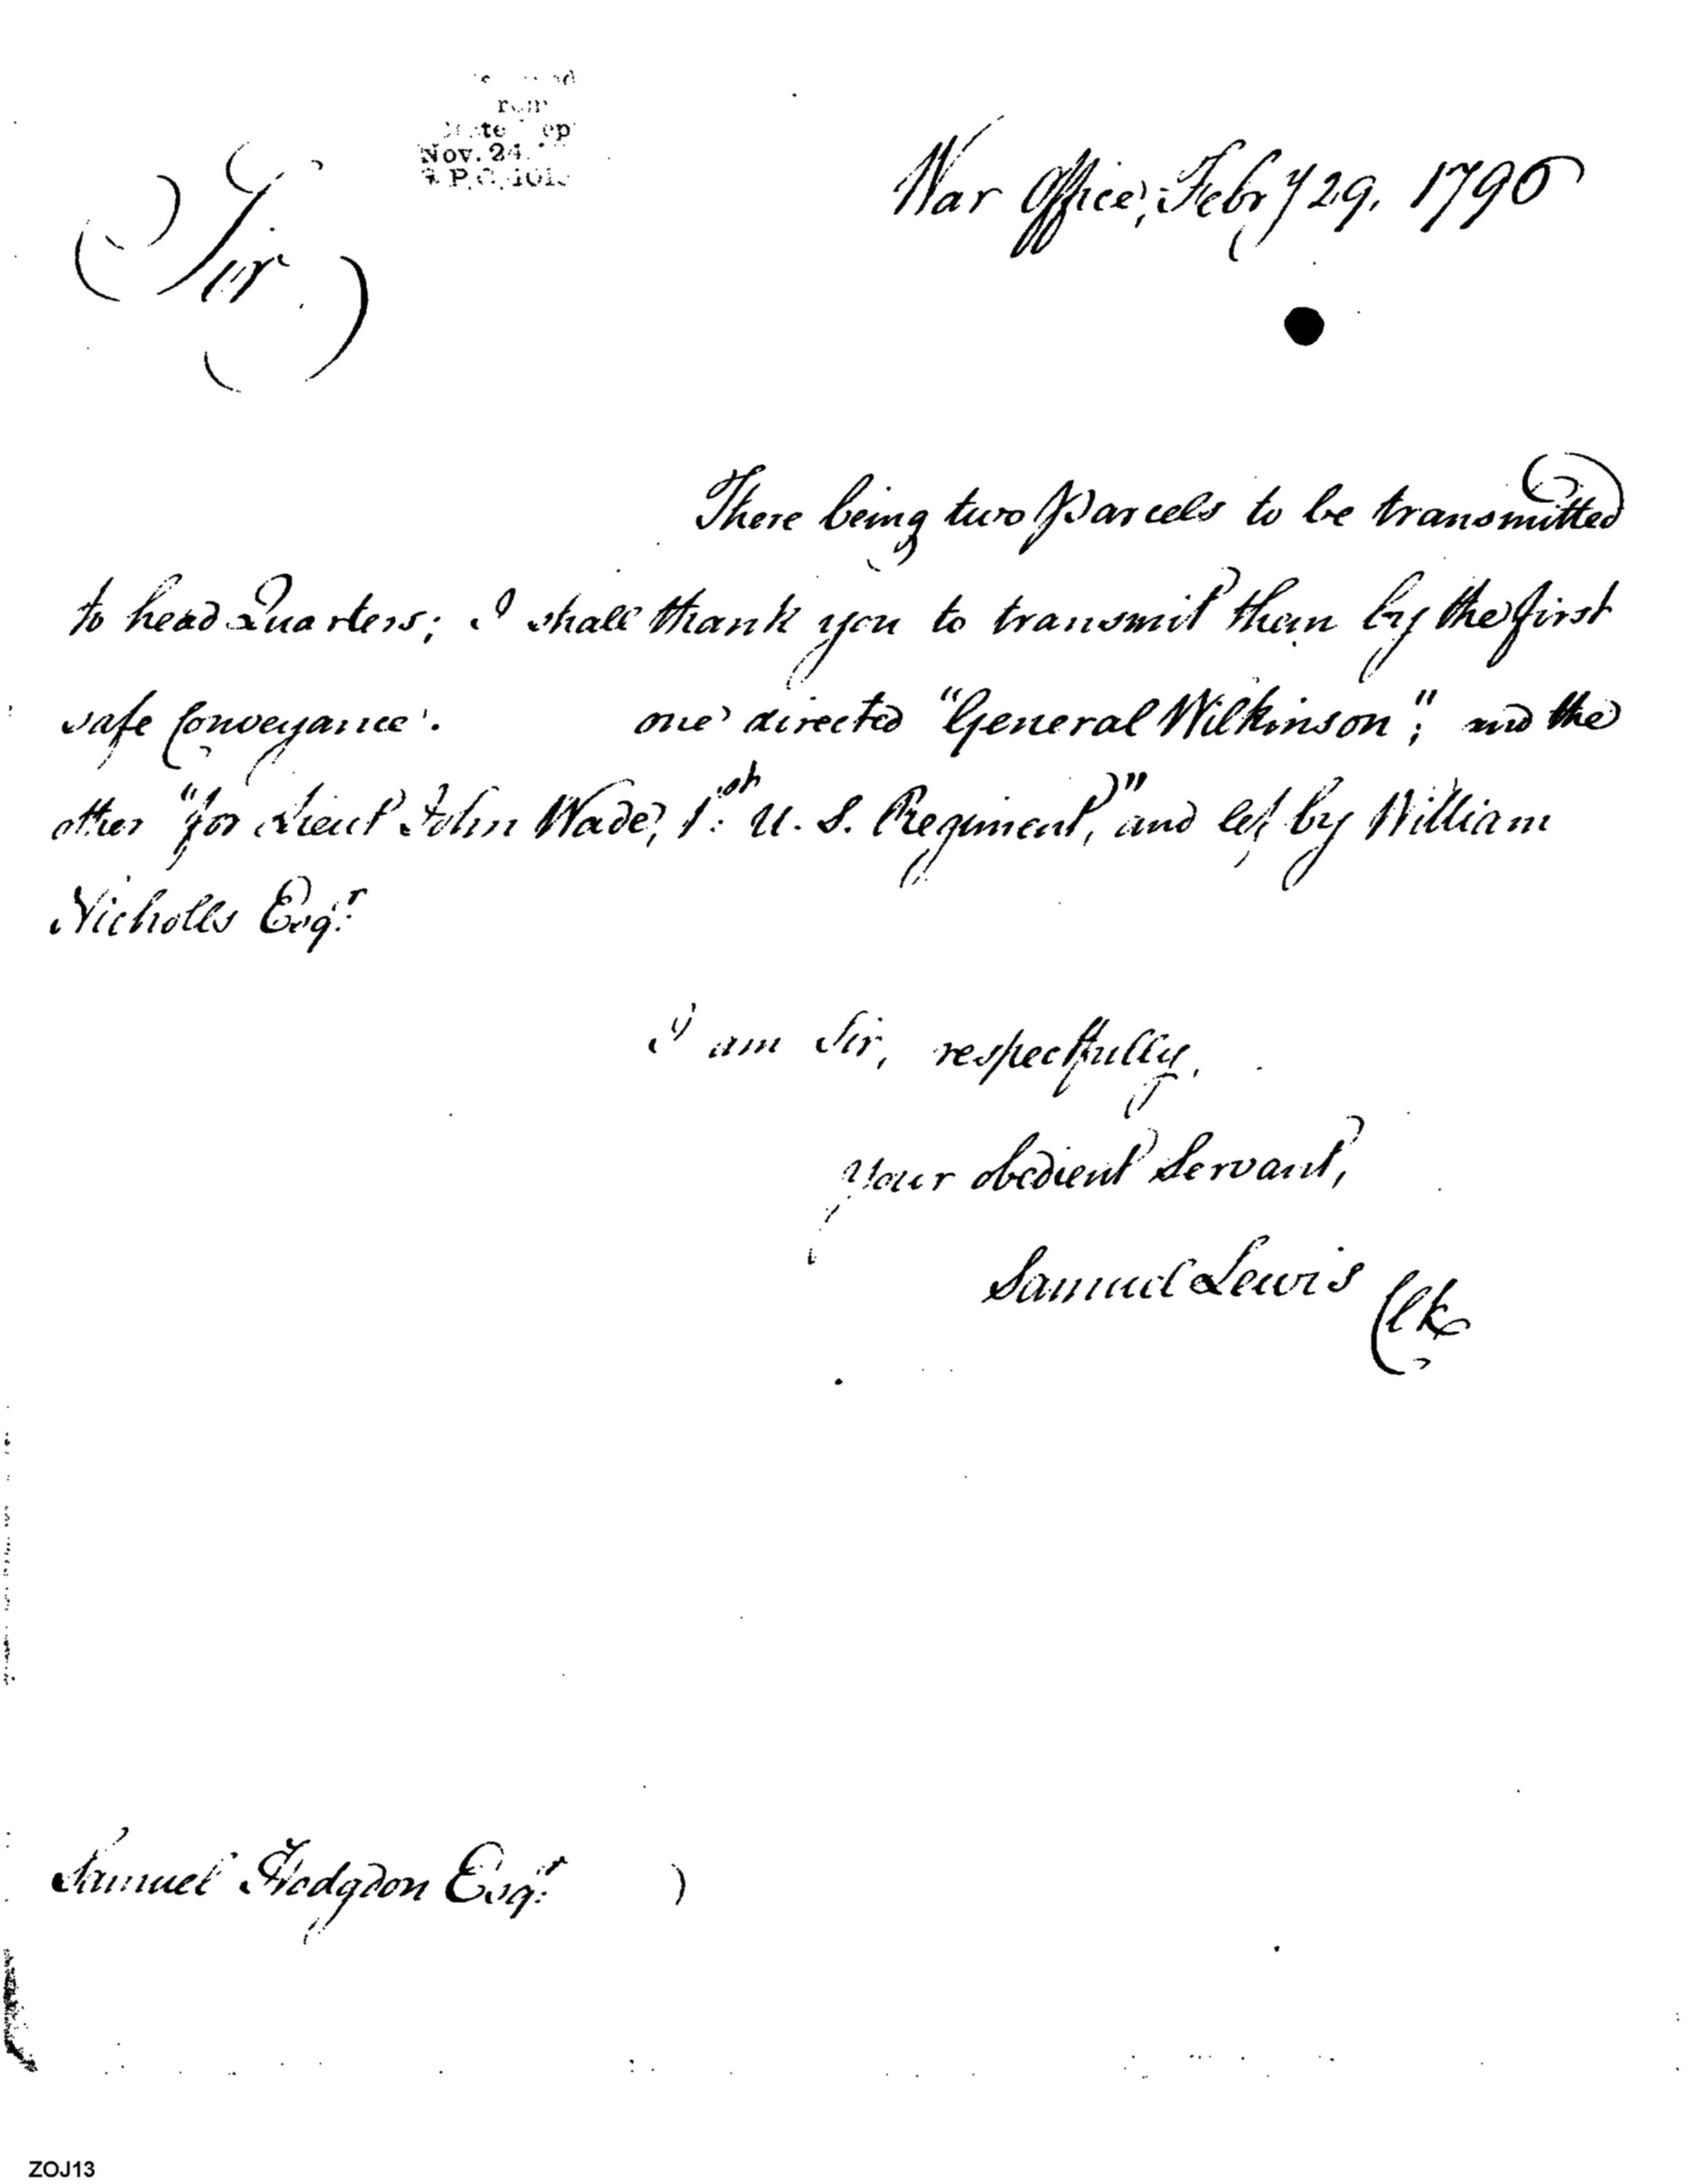 Nov. 24.
War Office, Febry 29, 1796
Sir
There being two Parcels to be transmitted
to head Quarters; I shall thank you to transmit them by the first
safe Conveyance. one directed "General Wilkinson"; and the
other "for Lieut John Wade, 1.st U. S. Regiment," and left by William
Nicholls Esqr.
I am Sir, respectfully,
Your obedient Servant,
Samuel Lewis Clk
Samuel Hodgdon Esqr.
ZOJ13